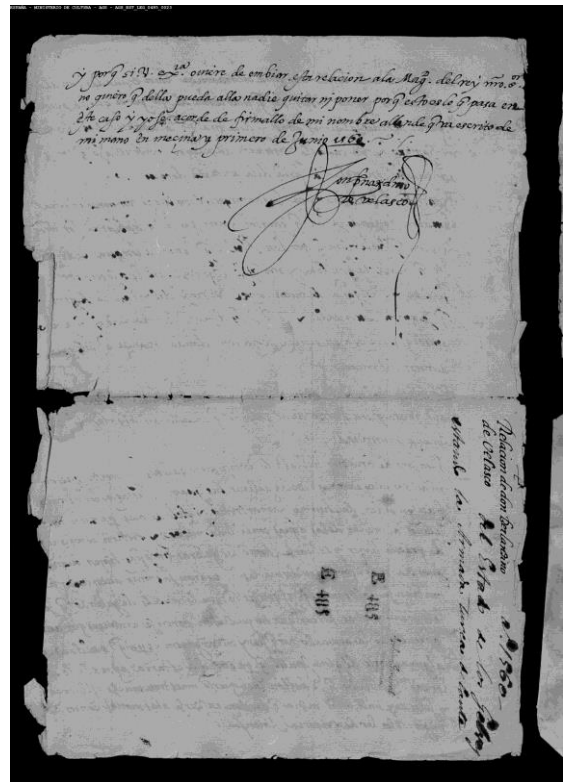 ESPAÑA - MINISTERIO DE CULTURA - AGS - AGS_EST_LEG_0485_0023
y porq̃ si V. ex.ª quiere de embiar esta relacion a la Mag.ᵈ del rey nr̃o s.ºʳ
no quiero q̃ della pueda alla nadie quitar ni poner porq̃ esto es lo q̃ pasa en
este caso y yo acorde de firmallo de mi nombre allende q̃ va escrito de
mi mano en mecina y primero de Junio 1560
de velasco
Relacion de don
de Velasco del Estado de los Gelbes
estando la Armada turca
a.º 1560
E 485
E 485